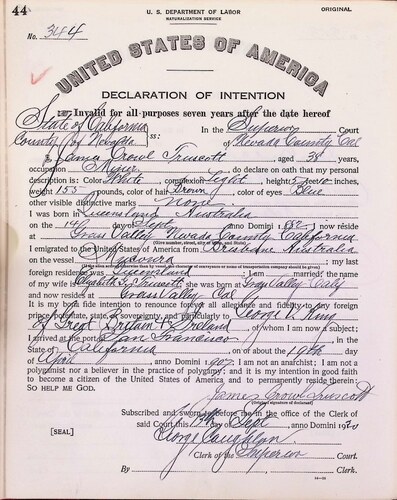 44
U. S. DEPARTMENT OF LABOR
NATURALIZATION SERVICE
ORIGINAL
No. 344
UNITED STATES OF AMERICA
DECLARATION OF INTENTION
Invalid for all purposes seven years after the date hereof
State of California
County of Nevada
ss:
In the Superior Court
of Nevada County Cal
I, James Crowl Truscott, aged 38 years,
occupation Miner, do declare on oath that my personal
description is: Color White, complexion Light, height 5 feet 10 inches,
weight 155 pounds, color of hair Brown, color of eyes Blue
other visible distinctive marks None
I was born in Queensland Australia
on the 14 day of Sept, anno Domini 1882; I now reside
at Grass Valley Nevada County California
(Give number, street, city or town, and State.)
I emigrated to the United States of America from Brisbane Australia
on the vessel; my last
foreign residence was Queensland; I am married; the name
of my wife is Elizabeth Truscott; she was born at Grass Valley Calif
and now resides at Grass Valley Cal
It is my bona fide intention to renounce forever all allegiance and fidelity to any foreign
prince, potentate, state, or sovereignty, and particularly to George V. King
of Great Britain & Ireland, of whom I am now a subject;
I arrived at the port of San Francisco, in the
State of California, on or about the 19th day
of April, anno Domini 1907; I am not an anarchist; I am not a
polygamist nor a believer in the practice of polygamy; and it is my intention in good faith
to become a citizen of the United States of America and to permanently reside therein:
SO HELP ME GOD.
James Crowl Truscott
(Original signature of declarant)
Subscribed and sworn to before me in the office of the Clerk of
said Court this day of Sept, anno Domini 1920
[SEAL]
George Coughlan
Clerk of the Superior Court.
By, Clerk.